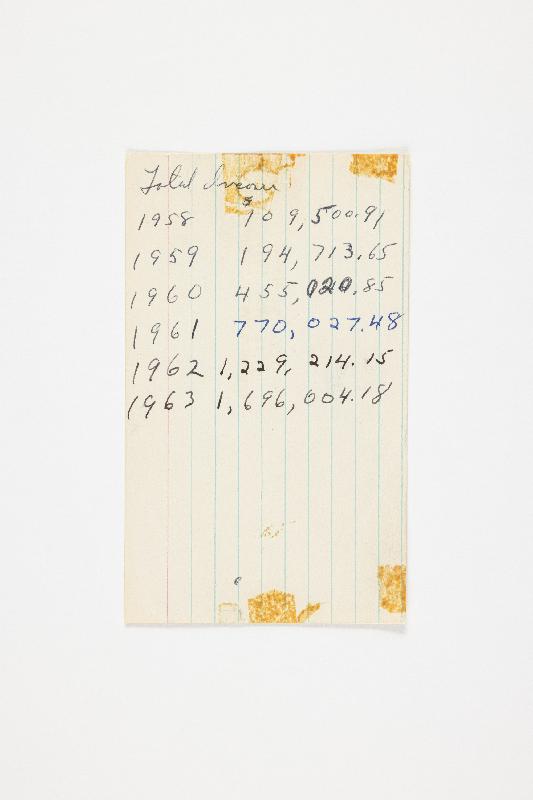 Total Income
1958 $109,500.91
1959 194,713.65
1960 455,020.85
1961 770,027.48
1962 1,229,214.15
1963 1,696,004.18